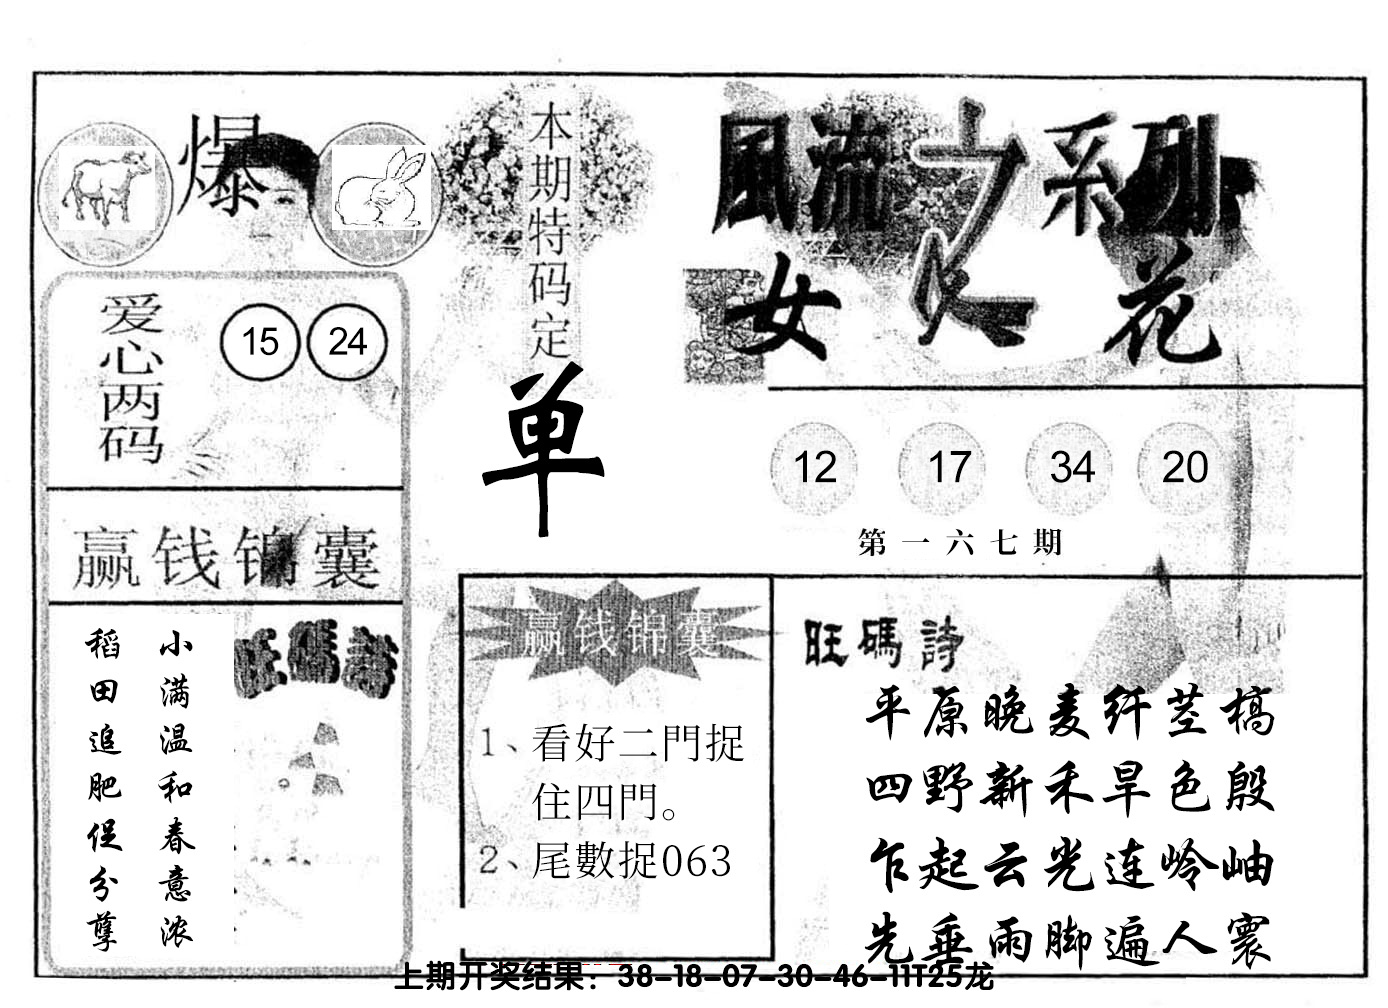 爆
爱心两码
15 24
赢钱锦囊
小满温和春意浓
稻田追肥促分孽
旺碼詩
本期特码定
单
赢钱锦囊
1、看好二門捉
住四門。
2、尾數捉063
風流之系列
女人花
12 17 34 20
第一六七期
旺碼詩
平原晚麦纤茎槁
四野新禾旱色殷
乍起云光连岭岫
先垂雨脚遍人寰
上期开奖结果：38-18-07-30-46-11T25龙